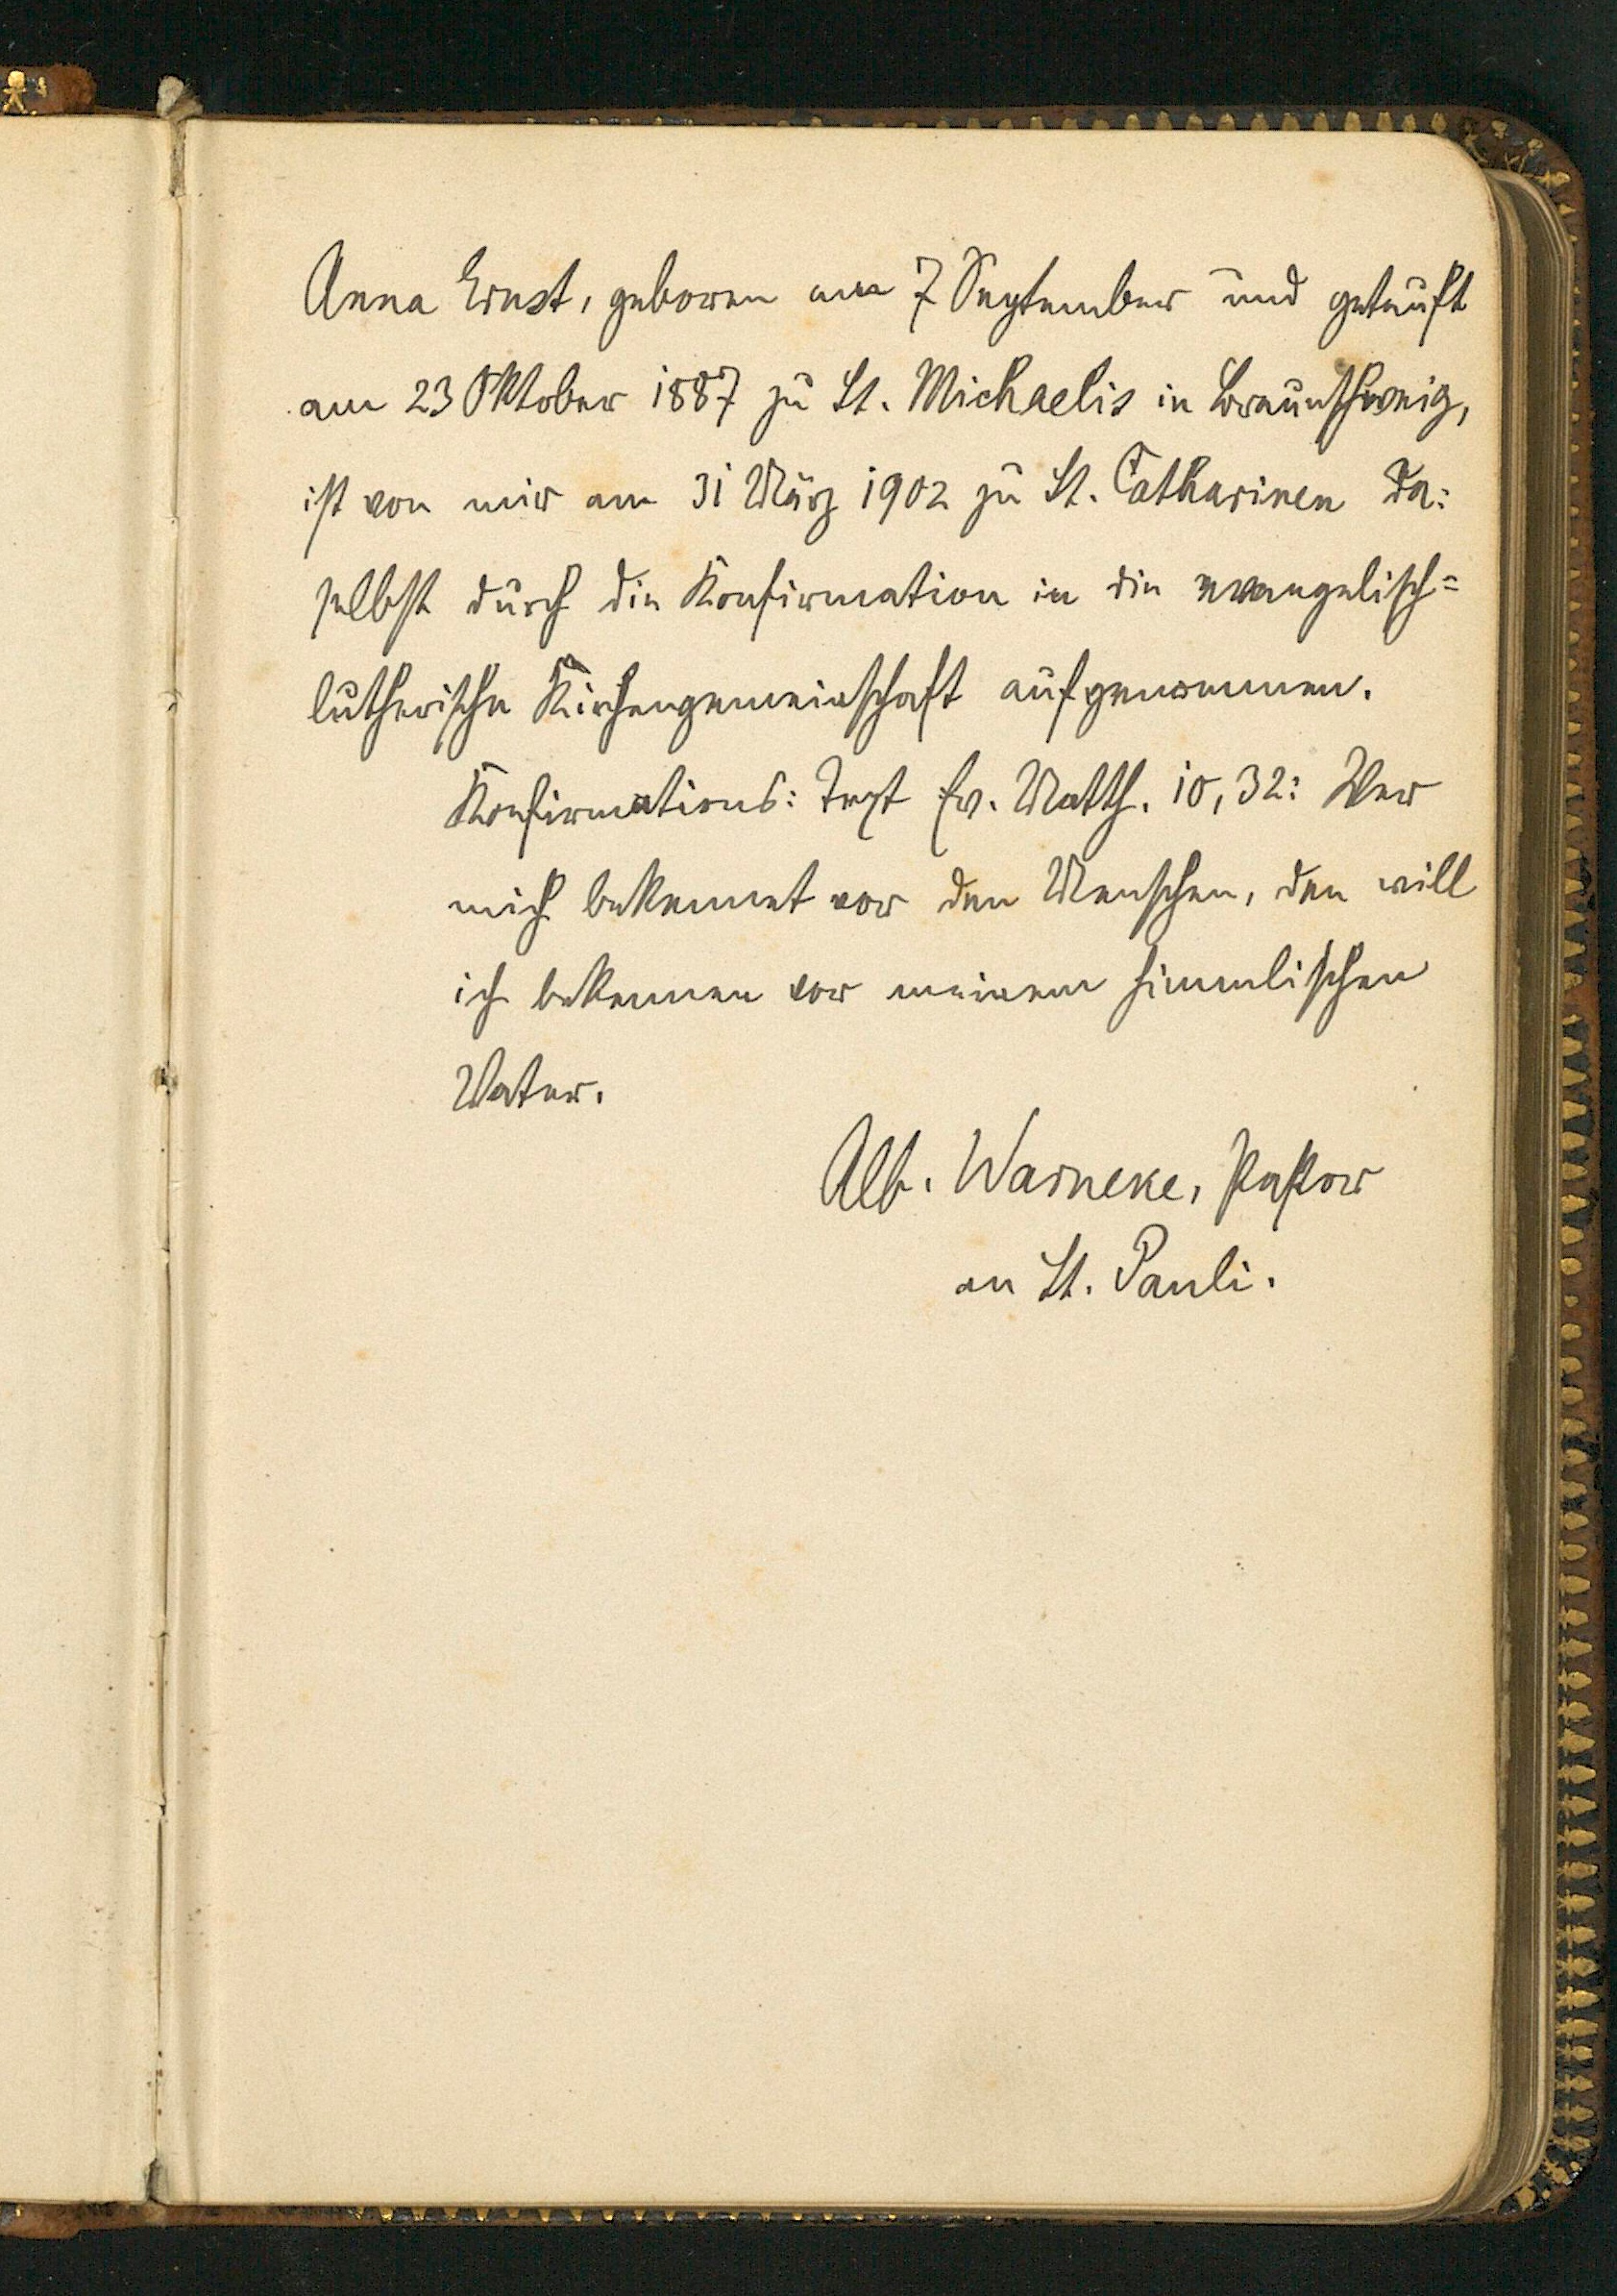 Anna Ernst, geboren am 7 September und getauft
am 23 Oktober 1887 zu St. Michaelis in Braunschweig,
ist von mir am 31 März 1902 zu St. Catharinen da:
selbst durch die Konfirmation in die evangelisch=
lutherische Kirchengemeinschaft aufgenommen.
Konfirmations: Text Ev. Matth. 10, 32: Wer
mich bekennet vor den Menschen, den will
ich bekennen vor meinem himmlischen
Vater.
Alb. Warneke, Pastor
an St. Pauli.